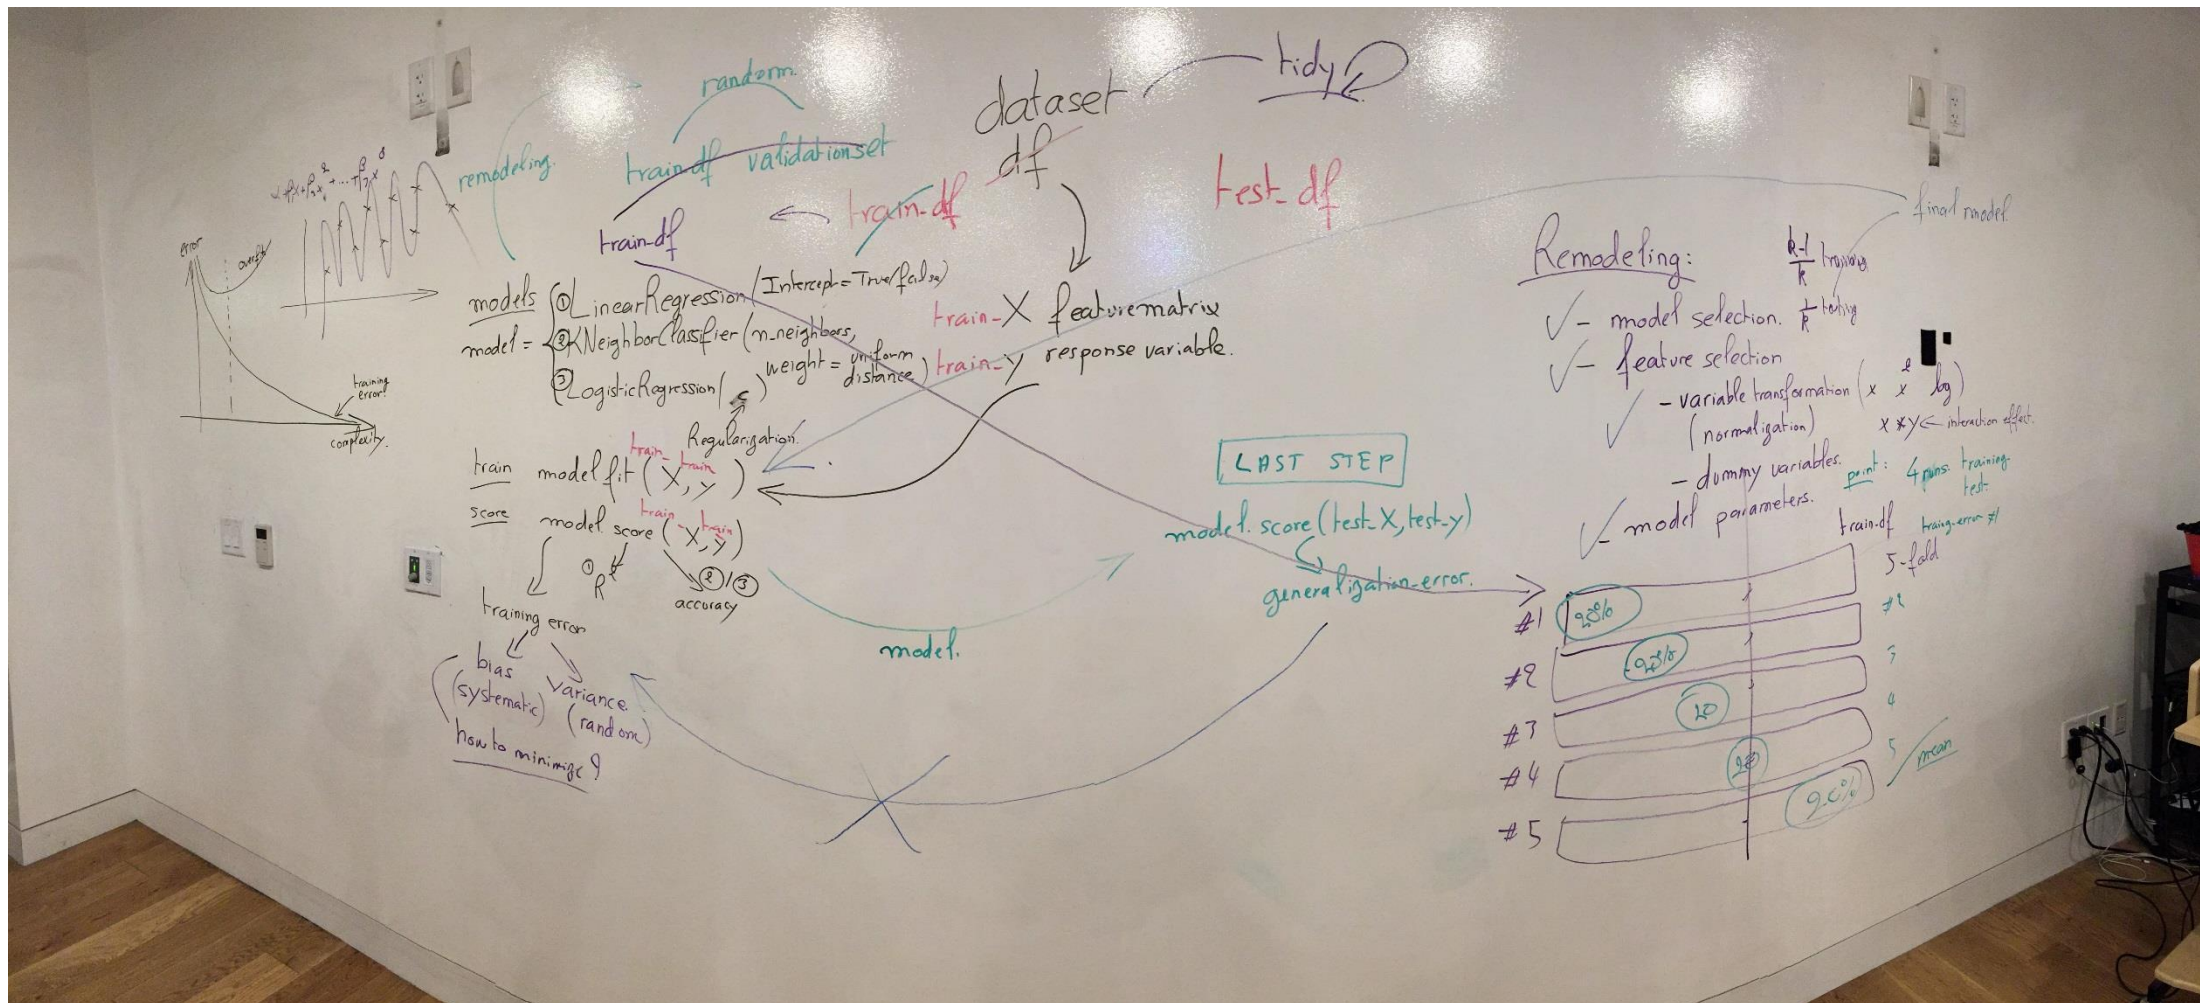 tidy
random
dataset
df
train-df validation set
remodeling.
train-df
test_df
train-df
final model.
error
overfit
training error!
complexity.
models
model =
① LinearRegression (Intercept = True/false)
② KNeighborClassifier (n_neighbors,
weight = uniform
distance)
③ LogisticRegression( c )
Regularization.
train_X feature matrix
train_y response variable.
train model fit (train_X, train_y)
score model. score (train_X, train_y)
① R²
②/③
accuracy
training error
bias
(systematic)
variance
(random)
how to minimize?
model.
LAST STEP
model. score (test_X, test_y)
generalization_error.
Remodeling:
k-1/k training
- model selection. 1/k testing
- feature selection
- variable transformation (x x² log)
(normalization)
x * y ← interaction effect.
- dummy variables.
- model parameters.
point: 4 runs. training
test
train-df
5-fold
#1 20%
#2
#3 20
#4 20
#5 20%
#2
3
4
5 / mean